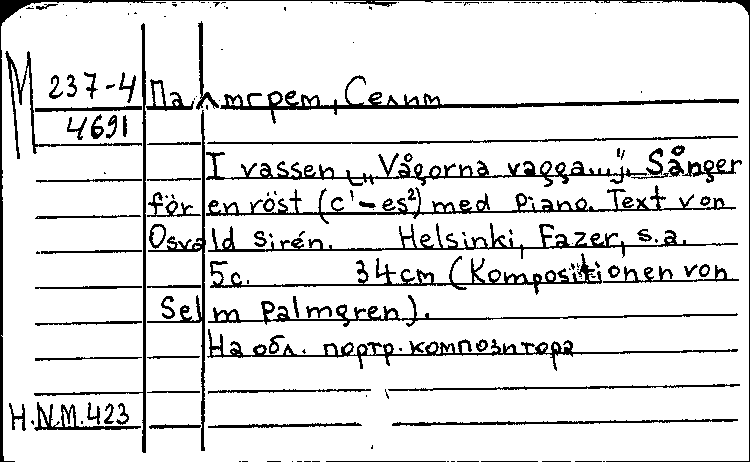 М 237-4 Палмгрем, Селим
4691
I vassen [„Vågorna vagga..."]. Sånger
för en röst (c¹-es²) med Piano. Text von
Osvald Sirén. Helsinki, Fazer, s.a.
5c. 34cm (Kompositionen von
Selm Palmgren).
На обл. портр. композитора
H.N.M.423